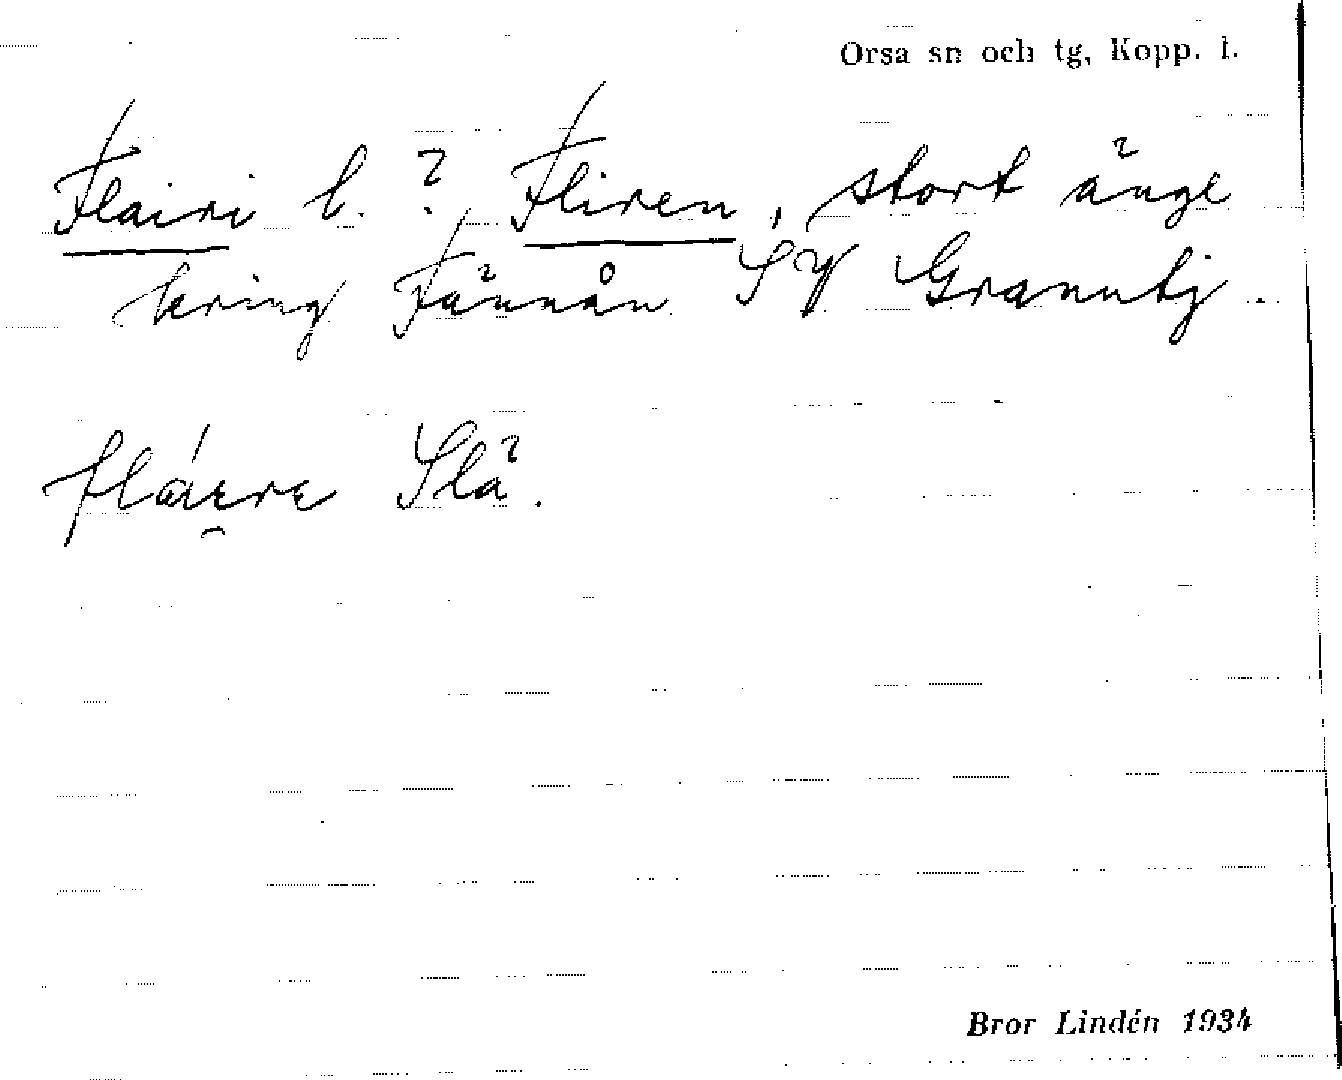 Orsa sn och tg, Kopp. l.
Flairi l. ? Fliren, stort änge
kring Fännån SV Granutj.
fláere Slä.
Bror Lindén 1934